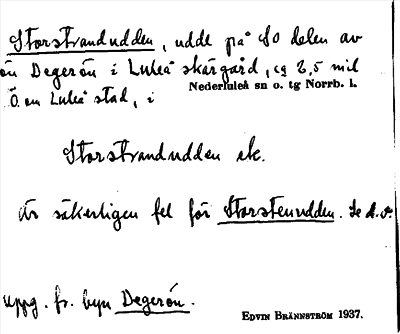 Storstrandudden, udde på SO delen av
ön Degerön i Luleå skärgård, cg 2,5 mil
Ö. om Luleå stad, i Nederluleå sn o. tg Norrb. l.
Storstrandudden ek.
Är säkerligen fel för Storstenudden. Se d. o.
Uppg. fr. byn Degerön.
EDVIN BRÄNNSTRÖM 1937.